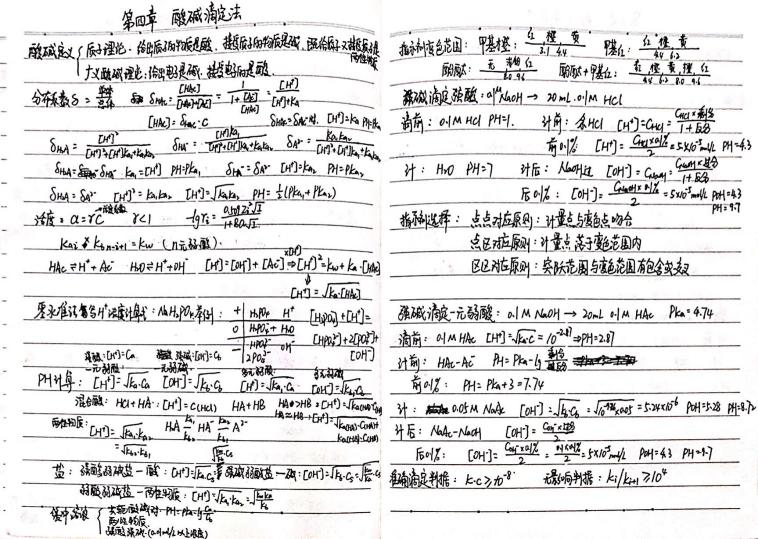 第四章 酸碱滴定法
酸碱定义 质子理论:给出质子的物质是酸,接受质子的物质是碱,既给质子又接受质子是两性物质
广义酸碱理论:给出电子是碱,接受电子的是酸
分布系数δ = 单体/总体 δHAc = [HAc]/([HAc]+[Ac⁻]) = 1/(1+[Ac⁻]/[HAc]) = [H⁺]/([H⁺]+Ka)
[HAc] = δHAc·C δHAc=δAc⁻时 [H⁺]=Ka PH=PKa
δH₂A = [H⁺]²/([H⁺]²+[H⁺]Ka₁+Ka₁Ka₂) δHA⁻ = [H⁺]Ka₁/([H⁺]²+[H⁺]Ka₁+Ka₁Ka₂) δA²⁻ = Ka₁Ka₂/([H⁺]²+[H⁺]Ka₁+Ka₁Ka₂)
δH₂A=δHA⁻ Ka₁=[H⁺] PH=PKa₁ δHA⁻=δA²⁻ [H⁺]=Ka₂ PH=PKa₂
δH₂A=δA²⁻ [H⁺]²=Ka₁Ka₂ [H⁺]=√Ka₁Ka₂ PH=½(PKa₁+PKa₂)
活度: α=rC r<1 -lg ri = 0.509Zi²√I/(1+Bå√I)
Kai × Kb n-i+1 = Kw (n元弱酸)
HAc⇌H⁺+Ac⁻ H₂O⇌H⁺+OH⁻ [H⁺]=[OH⁻]+[Ac⁻] ×[H⁺]⇒ [H⁺]²=Kw+Ka·[HAc]
[H⁺]=√Ka·[HAc]
NaH₂PO₄举例: + H₃PO₄ H⁺ [H₃PO₄]+[H⁺]=
0 H₂PO₄⁻ H₂O [HPO₄²⁻]+2[PO₄³⁻]
- HPO₄²⁻ OH⁻ [OH⁻]
2PO₄³⁻
强酸:[H⁺]=Ca 强碱:[OH⁻]=Cb
一元弱酸 一元弱碱 多元弱酸 多元弱碱
PH计算: [H⁺]=√Ka·Ca [OH⁻]=√Kb·Cb [H⁺]=√Ka₁·Ca [OH⁻]=√Kb₁·Cb
混合酸: HCl+HA:[H⁺]=C(HCl) HA+HB HA≫HB:[H⁺]=√Ka(HA)·C(HA)
HA≈HB:[H⁺]=√Ka(HA)·C(HA)+Ka(HB)·C(HB)
两性物质: [H⁺]=√Ka₁·Ka₂ H₂A HA⁻ A²⁻
盐: 强酸弱碱盐—酸:[H⁺]=√Ka·Ca 强碱弱酸盐—碱:[OH⁻]=√Kb·Cb
弱酸弱碱盐—两性物质:[H⁺]=√Ka₁·Ka₂
缓冲溶液 共轭酸碱对:PH=PKa-lg Ca/Cb
两性物质
强酸强碱(0.01mol/L以上浓度)
指示剂变色范围: 甲基橙: 红 橙 黄 3.1 4.4 甲基红: 红 橙 黄 4.4 6.2
酚酞: 无 红 8.0 9.6 酚酞+甲基红: 红 橙 黄 橙 红 4.4 6.2 8.0 9.6
强碱滴定强酸: 0.1M NaOH → 20mL 0.1M HCl
滴前: 0.1M HCl PH=1. 计前: 余HCl [H⁺]=CHCl=CHCl×剩余/(1+反分)
前0.1%: [H⁺]=CHCl×0.1%/2=5×10⁻⁵mol/L PH=4.3
计: H₂O PH=7 计后: NaOH过 [OH⁻]=CNaOH=CNaOH×过分/(1+反分)
后0.1%: [OH⁻]=CNaOH×0.1%/2=5×10⁻⁵mol/L POH=4.3
PH=9.7
指示剂选择: 点点对应原则:计量点与变色点吻合
点区对应原则:计量点落于变色范围内
区区对应原则:突跃范围与变色范围有包含或交叉
强碱滴定一元弱酸: 0.1M NaOH → 20mL 0.1M HAc PKa=4.74
滴前: 0.1M HAc [H⁺]=√Ka·C=10⁻²·⁸⁷⇒PH=2.87
计前: HAc-Ac⁻ PH=PKa-lg
前0.1%: PH=PKa+3=7.74
计: 0.05M NaAc [OH⁻]=√Kb·Cb=√10⁻⁹·²⁶×0.05=5.24×10⁻⁶ POH=5.28 PH=8.72
计后: NaAc-NaOH [OH⁻]=COH⁻×过分/2
后0.1%: [OH⁻]=COH⁻×0.1%/2=0.1×0.1%/2=5×10⁻⁵mol/L POH=4.3 PH=9.7
准确滴定判据: K·C≥10⁻⁸ 无影响判据: Ki/Ki+1≥10⁴